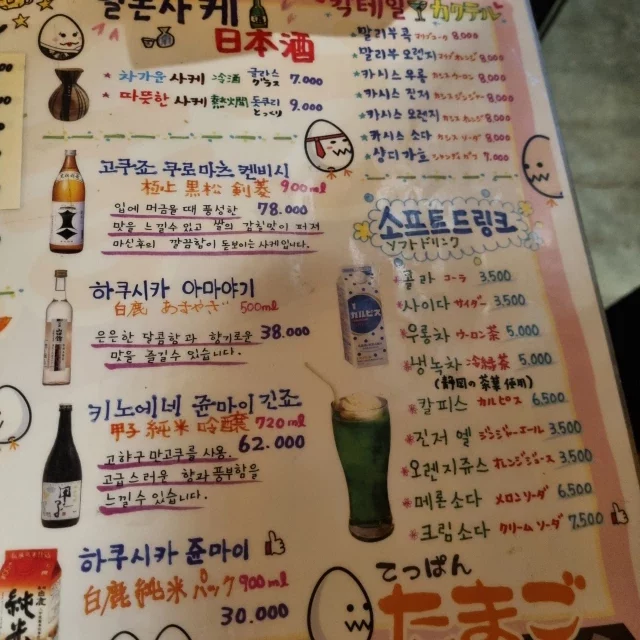 일본사케
日本酒
* 차가운 사케 冷酒 글라스 グラス 7.000
* 따뜻한 사케 熱燗 돗쿠리 とっくり 9.000
고쿠죠 쿠로마츠 켄비시
極上 黒松 剣菱 900ml
78.000
입에 머금을 때 풍성한
맛을 느낄수 있고 쌀의 감칠맛이 퍼져
마신후의 깔끔함이 돋보이는 사케입니다.
하쿠시카 아마야기
白鹿 あまやぎ 500ml
38.000
은은한 달콤함과 향기로운
맛을 즐길수 있습니다.
키노에네 쥰마이긴죠
甲子 純米 吟醸 720ml
62.000
고급스러운 향과 풍부함을
느낄수 있습니다.
하쿠시카 쥰마이
白鹿 純米 パック 900ml
30.000
칵테일 カクテル
말리부콕 8,000
말리부 오렌지 8,000
* 카시스 우롱 8,000
* 카시스 진저 8,000
* 카시스 오렌지 8,000
* 카시스 소다 8,000
* 샹디가프 9,000
소프트드링크
ソフトドリンク
* 콜라 コーラ 3,500
* 사이다 サイダー 3,500
* 우롱차 ウーロン茶 5,000
* 냉녹차 冷緑茶 5,000
(静岡の茶葉使用)
* 칼피스 カルピス 6,500
* 진저엘 ジンジャーエール 3,500
* 오렌지쥬스 オレンジジュース 3,500
* 메론소다 メロンソーダ 6,500
* 크림소다 クリームソーダ 7,500
てっぱん
たまご
カルピス
純米